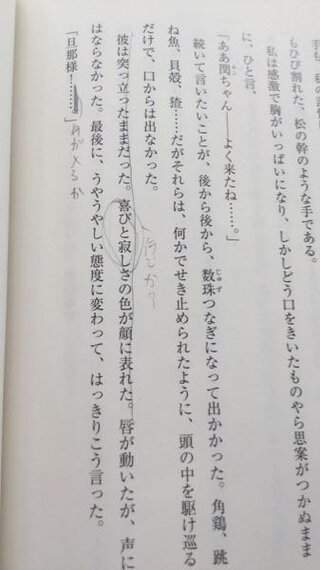 もひび割れた、松の幹のような手である。
私は感激で胸がいっぱいになり、しかしどう口をきいたものやら思案がつかぬまま
に、ひと言、
「ああ閏ちゃん――よく来たね……。」
続いて言いたいことが、後から後から、数珠つなぎになって出かかった。角鶏、跳
ね魚、貝殻、猹……だがそれらは、何かでせき止められたように、頭の中を駆け巡る
だけで、口からは出なかった。
彼は突っ立ったままだった。喜びと寂しさの色が顔に表れた。唇が動いたが、声に
はならなかった。最後に、うやうやしい態度に変わって、はっきりこう言った。
「旦那様！……。」